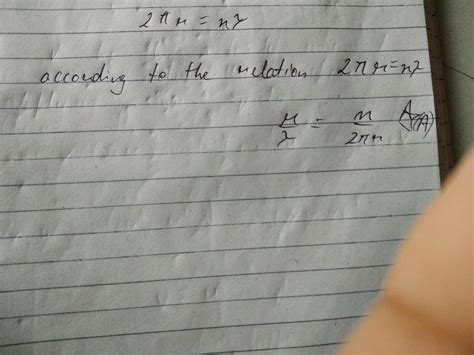 2πr = nλ
according to the relation 2πr=nλ
r/λ = n/2πr